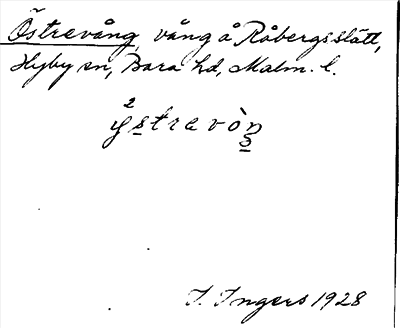 Östrevång, vång å Råbergsslätt,
Hyby sn, Bara hd, Malm. l.
²ÿstrevòŋ
I. Ingers 1928